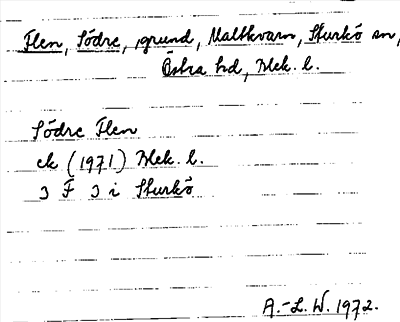 Flen, Södre, grund, Maltkvarn, Sturkö sn,
Östra hd, Blek. l.
Södre Flen
ek (1971) Blek. l.
3 F 3 i Sturkö
A.-L. W. 1972.